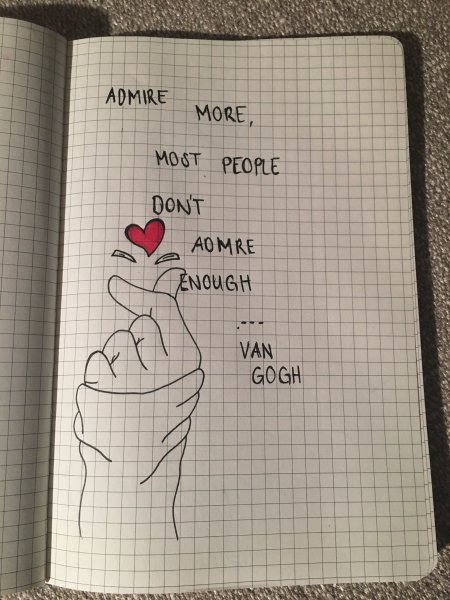 ADMIRE MORE,
MOST PEOPLE
DON'T
ADMRE
ENOUGH
----
VAN
GOGH